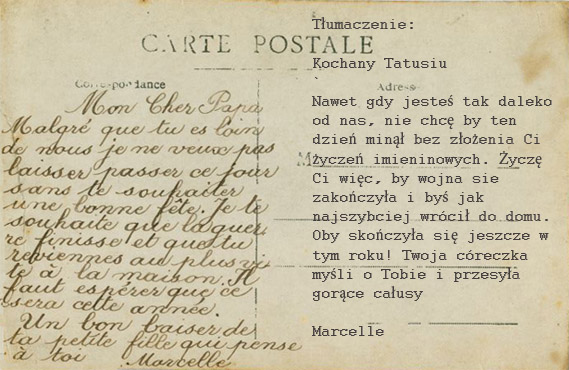 CARTE POSTALE
Correspondance
Adres
Mon Cher Papa
Malgré que tu es loin
de nous je ne veux pas
laisser passer ce jour
sans te souhaiter
une bonne fête. Je te
souhaite que la guer
re finisse et que tu
reviennes au plus vi
te à la maison. Il
faut espérer que ce
sera cette année.
Un bon baiser de
ta petite fille qui pense
à toi Marcelle
Tłumaczenie:
Kochany Tatusiu
Nawet gdy jesteś tak daleko
od nas, nie chcę by ten
dzień minął bez złożenia Ci
życzeń imieninowych. Życzę
Ci więc, by wojna sie
zakończyła i byś jak
najszybciej wrócił do domu.
Oby skończyła się jeszcze w
tym roku! Twoja córeczka
myśli o Tobie i przesyła
gorące całusy
Marcelle